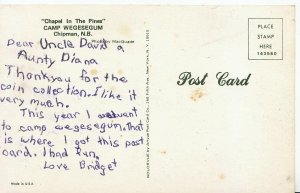 "Chapel In The Pines"
CAMP WEGESEGUM
Chipman, N.B.
Dear Uncle David &
Aunty Diana
Thankyou for the
coin collection. I like it
very much.
This year I went
to camp wegesegum. that
is where I got this post
card. I had fun.
Love Bridget
Post Card
PLACE
STAMP
HERE
Made in U.S.A.